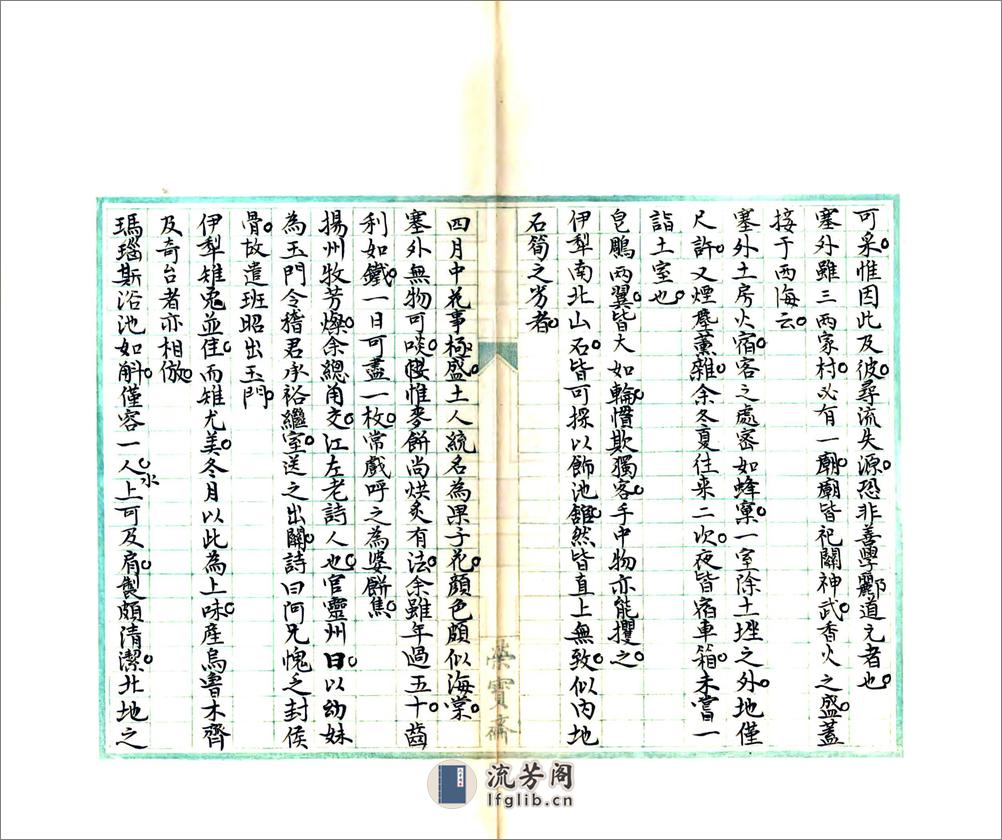 可采惟因此及彼尋流失源恐非善學酈道元者也
塞外雖三兩家村必有一廟廟皆祀關神武香火之盛蓋
接于西海云
塞外土房火宿客之處密如蜂窠一室除土㘸之外地僅
尺許又煙塵薰雜余冬夏往来二次夜皆宿車箱未嘗一
詣土室也
皂鵰兩翼皆大如輪慣欺獨客手中物亦能攫之
伊犁南北山石皆可採以飾池舘然皆直上無致似内地
石筍之劣者
四月中花事極盛土人統名為果子花顔色頗似海棠
塞外無物可啖惟麥餅尚烘炙有法余雖年過五十齒
利如鐵一日可盡一枚常戲呼之為婆餅焦
揚州牧芳燦余總角交江左老詩人也官靈州日以幼妹
為玉門令稽君承裕繼室送之出關詩曰阿兄愧乏封侯
骨故遣班昭出玉門
伊犁雉兔並佳而雉尤美冬月以此為上味産烏魯木齊
及奇台者亦相倣
瑪瑙斯浴池如斛僅容一人水上可及肩製頗清潔北地之
榮寶齋
流芳阁
lfglib.cn